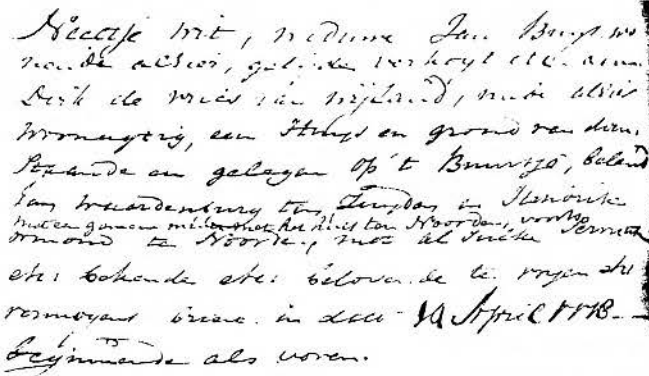 Neeltje Wit, weduwe Jan Buijs wo
nende alhier, gelijde verkoft etc. aan
Dirk de Vries van Nijland, mede alhier
woonagtig, een Huys en grond van dien,
staande en gelegen op 't Buurtje, belend
Jan Waardenburg ten Zuyden en Hendrik
met een gemeene muur met het huis ten Noorden, voorts
ten Noorden, met al sulke
etc: bekende etc: belovende te vryen etc
vermogens brieve in dato 19 April
beginnende als voren.